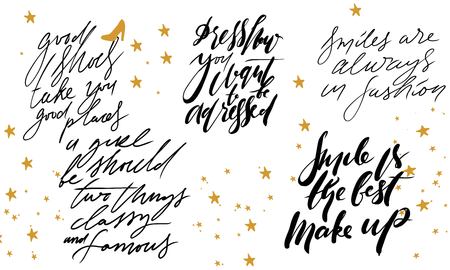 good
shoes
take you
good places
a girl
be should
two things
classy
and famous
Dress how
you want
to be
adressed
Smiles are
always
in fashion
Smile is
the best
make up